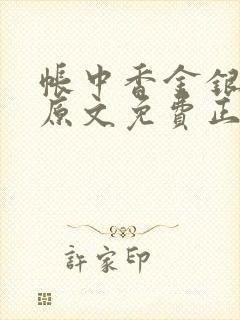 帳中香金銀
原文免費正
許家印